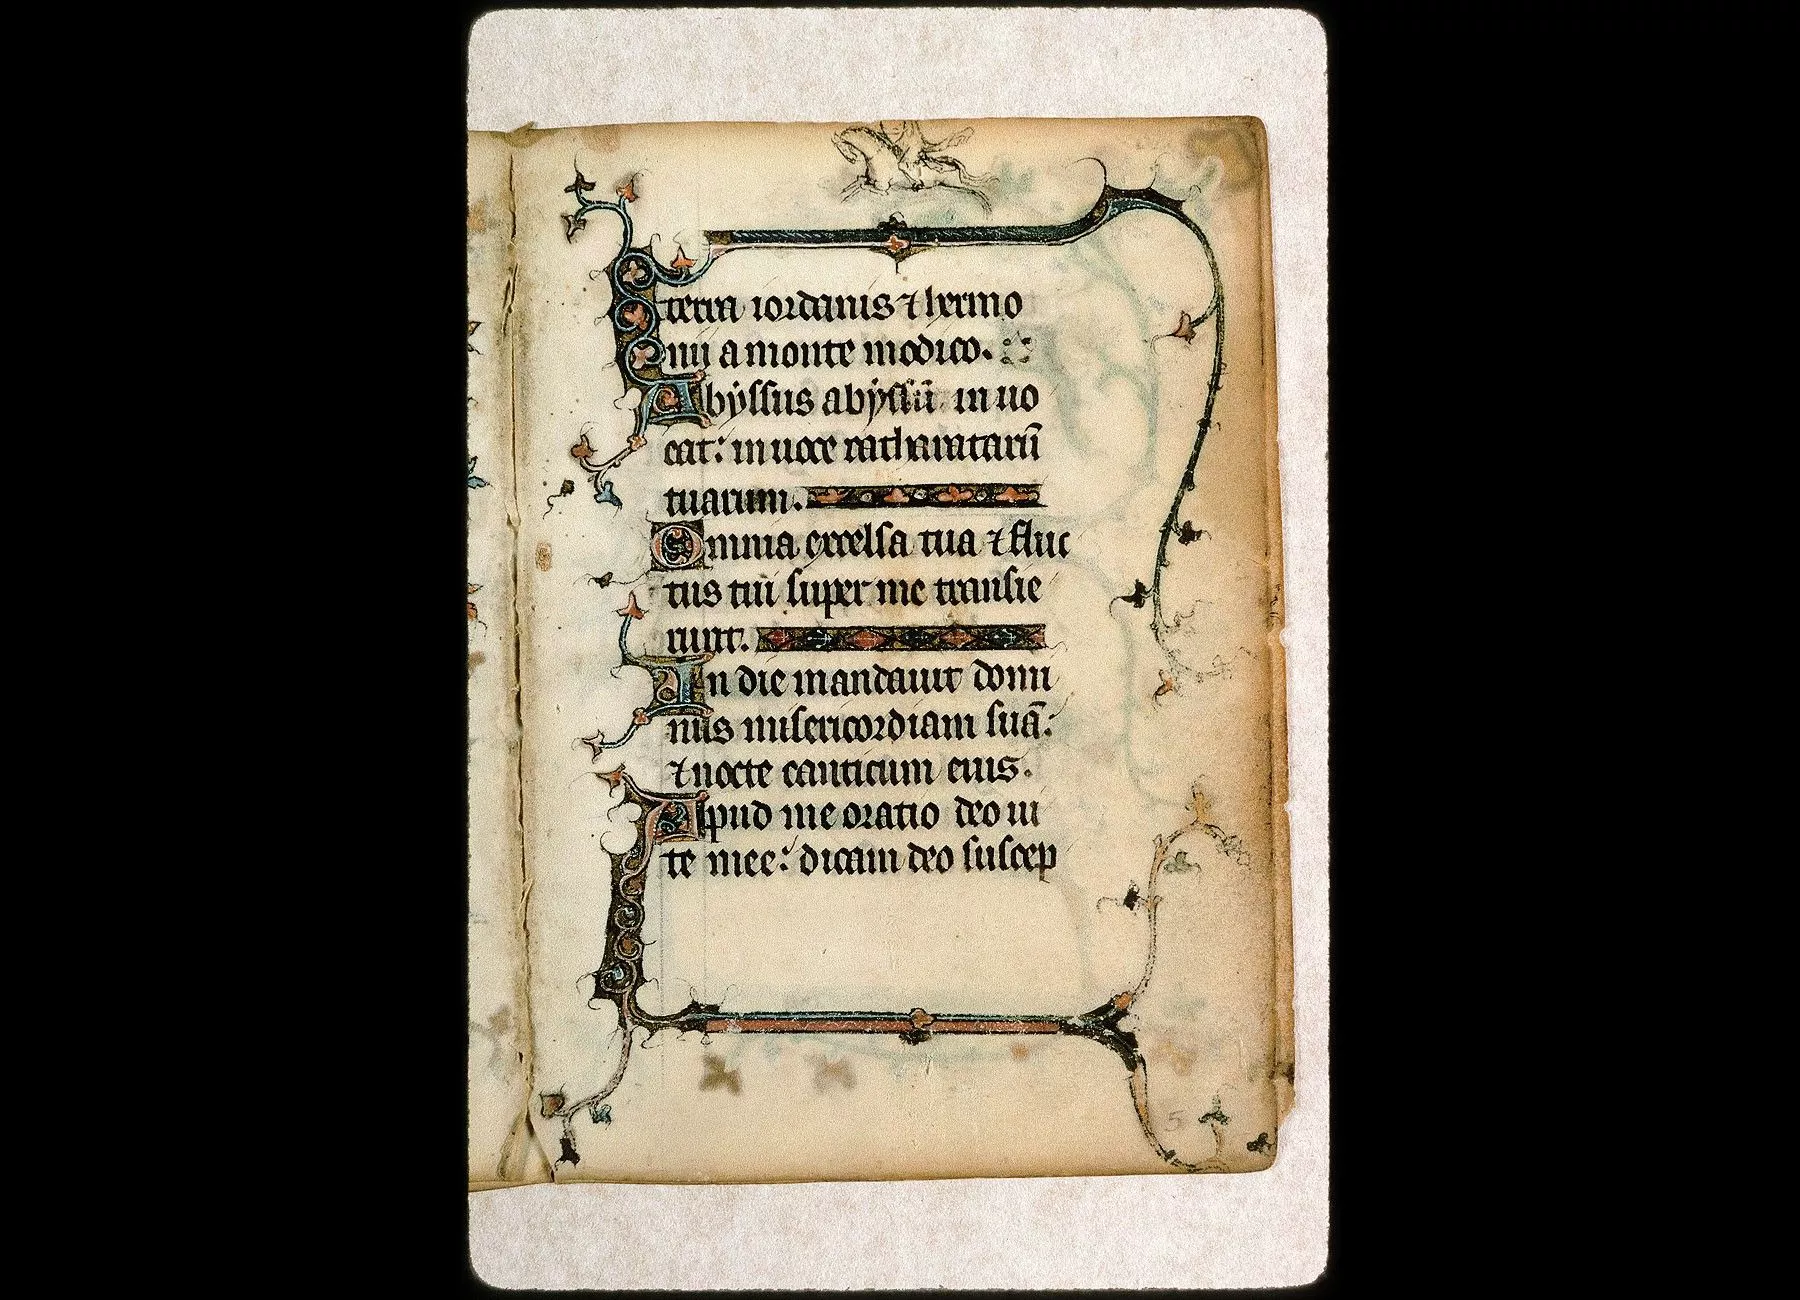 terra iordanis ⁊ hermo
nii a monte modico.
Abyssus abyssū inuo
cat: in uoce catharatarū
tuarum.
Omnia excelsa tua ⁊ fluc
tus tui super me transie
runt.
In die mandauit domi
nus misericordiam suā:
⁊ nocte canticum eius.
Apud me oratio deo ui
te mee: dicam deo suscep
5